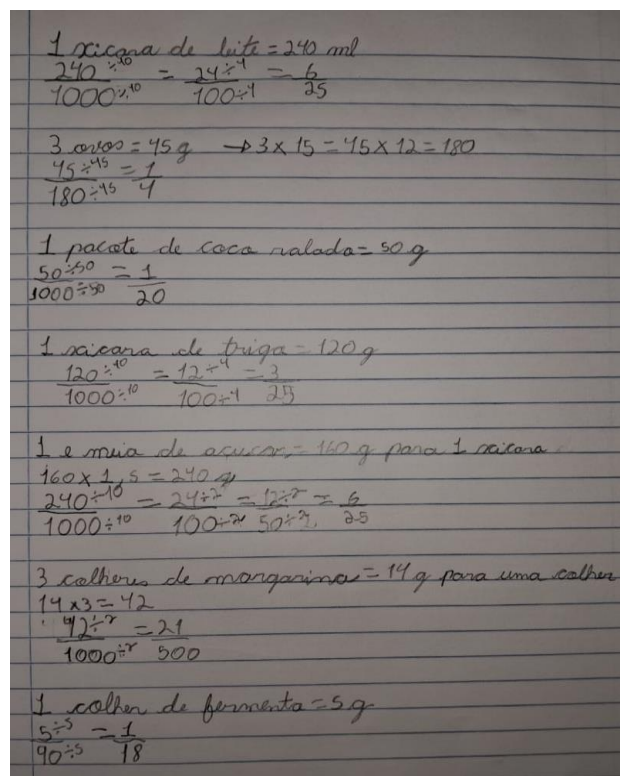 1 xicara de leite = 240 ml
240÷10/1000÷10 = 24÷4/100÷4 = 6/25
3 ovos = 45 g → 3 x 15 = 45 x 12 = 180
45÷45/180÷45 = 1/4
1 pacote de coco ralado = 50 g
50÷50/1000÷50 = 1/20
1 xicara de trigo = 120 g
120÷10/1000÷10 = 12÷4/100÷4 = 3/25
1 e meia de açucar = 160 g para 1 xicara
160 x 1,5 = 240 g
240÷10/1000÷10 = 24÷2/100÷2 = 12÷2/50÷2 = 6/25
3 colheres de margarina = 14 g para uma colher
14 x 3 = 42
42÷2/1000÷2 = 21/500
1 colher de fermento = 5 g
5÷5/90÷5 = 1/18